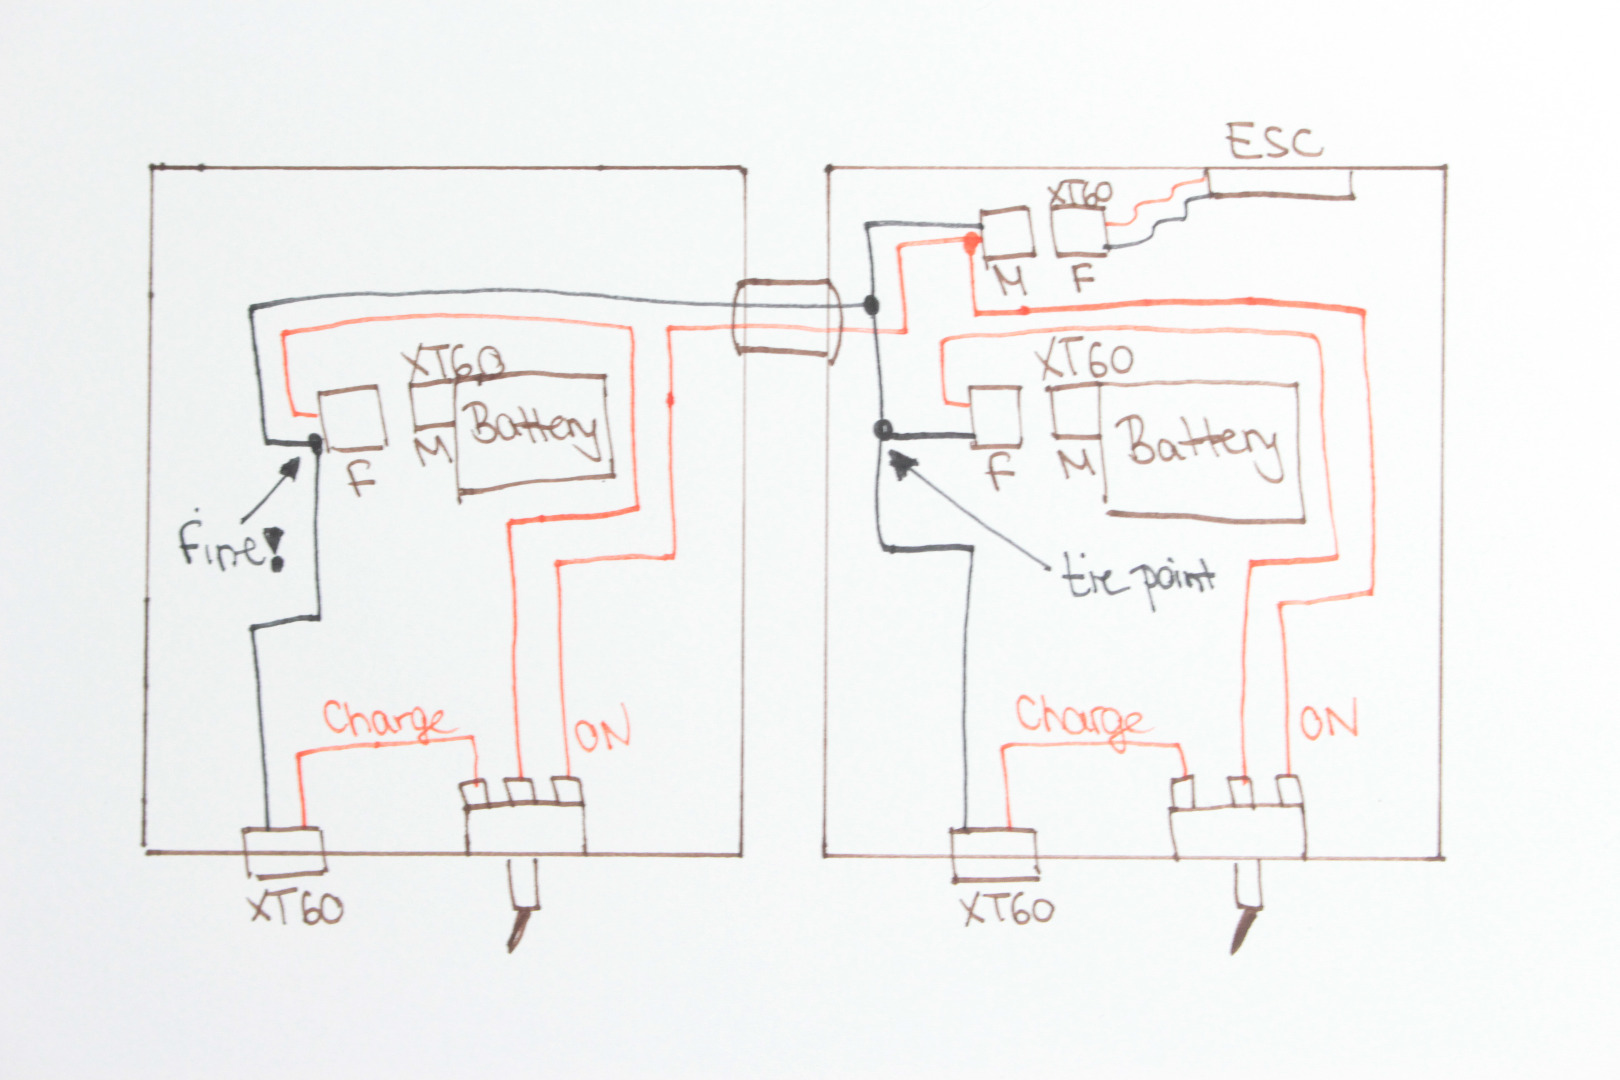 ESC
XT60
M
F
XT60
Battery
F
M
fine!
XT60
Battery
F
M
tie point
Charge
ON
Charge
ON
XT60
XT60